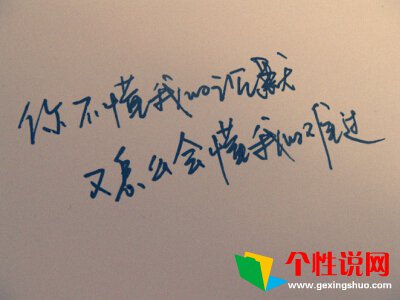 你不懂我的沉默
又怎么会懂我的难过
个性说网
www.gexingshuo.com